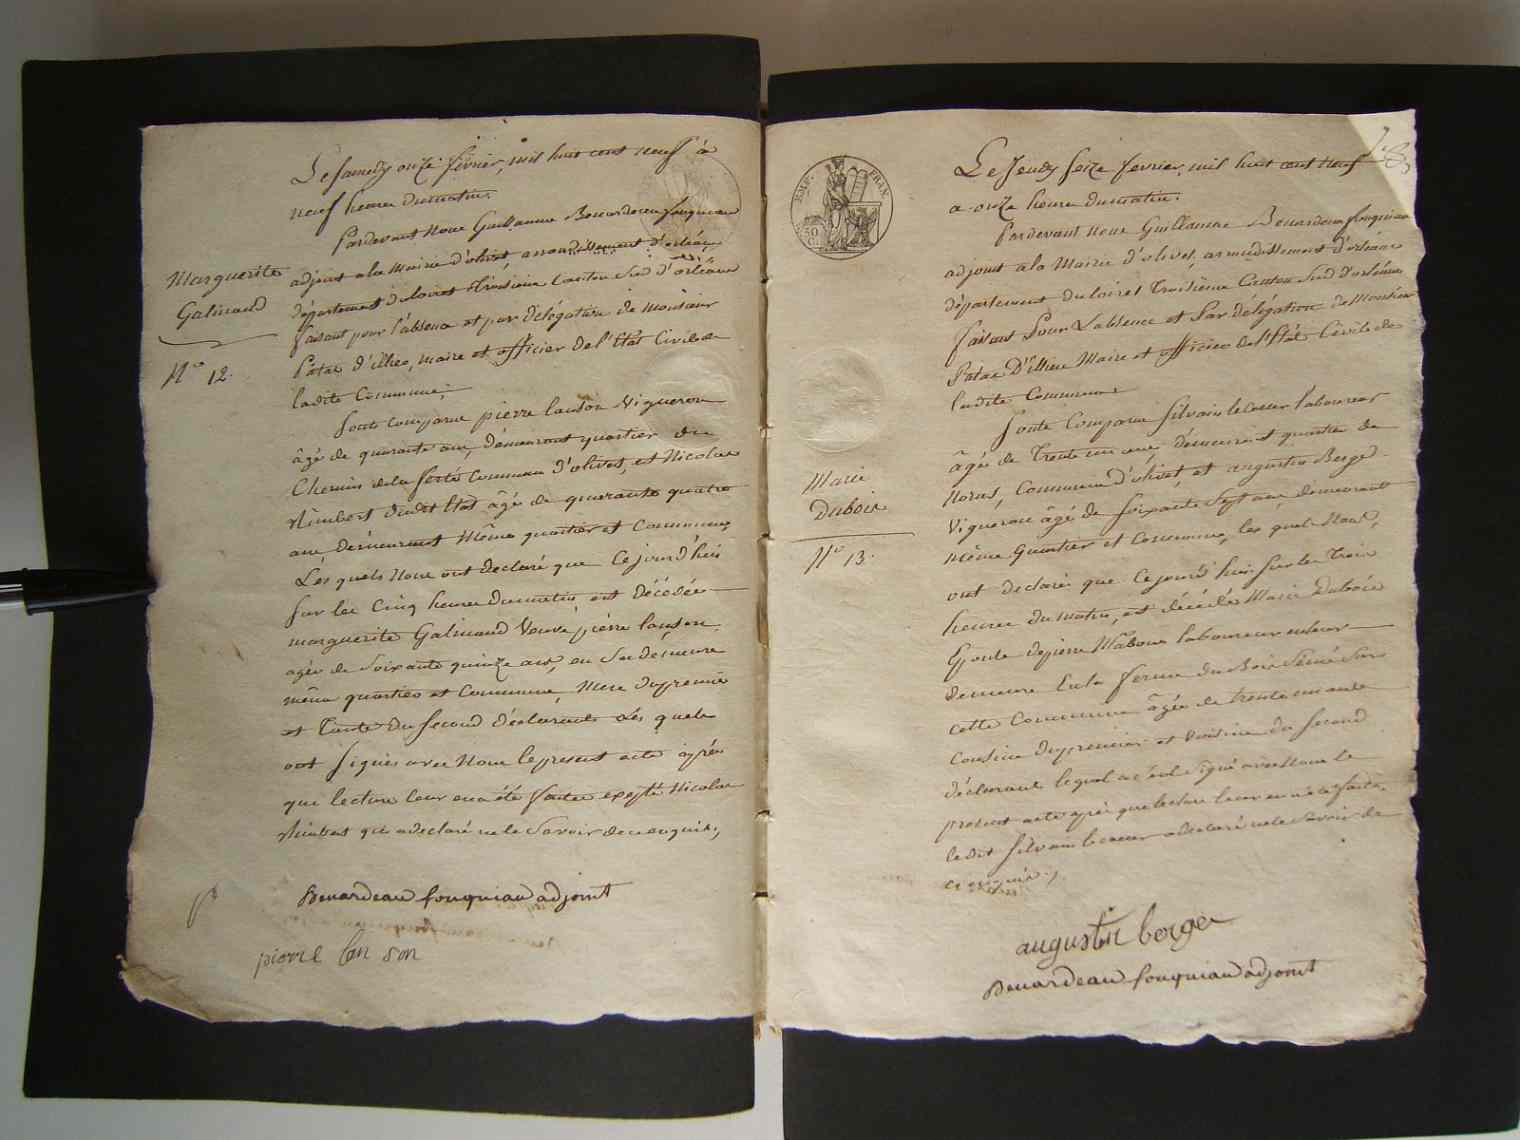 Marguerite
Galinaud
N.º 12.
Le Samedy onze fevrier, mil huit cent neuf à
neuf heures du matin.
Pardevant Nous Guillaume Benardeau fouquiau
adjoint a la Mairie d'olivet, arrondissement d'orléans,
département du loiret troisieme Canton Sud d'orléans
faisant pour l'absence et par délégation de Monsieur
Patas d'illiers, maire et officier de l'Etat Civile de
ladite Commune;
Sont comparus pierre lanson Vigneron
âgé de quarante ans, demeurant quartier du
Chemin de la ferté Commune d'olivet, et Nicolas
Rimbert dudit Etat âgé de quarante quatre
ans demeurant Même quartier et Commune,
Les quels Nous ont declaré que Cejourd'hui
sur les Cinq heures Dumatin est Décédée
marguerite Galinaud Veuve pierre lanson
agée de Soixante quinze ans, en Sa demeure
même quartier et Commune Mere du premier
et Tante du Second déclarants Les quels
ont signés avec Nous le present acte après
que lecture leur en a été faite excepté Nicolas
Rimbert qui a declaré ne le Savoir de ce enquis.,
Benardeau fouquiau adjoint
pierre lan son
EMP. FRAN.
50
Marie
Dubois
N.º 13.
Le Jeudy Seize fevrier, mil huit cent neuf
a onze heures dumatin.
Pardevant nous Guillaume Benardeau fouquiau
adjoint a la Mairie d'olivet, arrondissement d'orléans
département du loiret Troisiéme Canton Sud d'orléans
faisant Pour L'absence et Par délégation de Monsieur
Patas D'illiers Maire et officier de l'Etat Civile de
ladite Commune
Sont Comparus Silvain lecoeur laboureur
âgé de Trente un ans, demeurant quartier de
Noras, Commune d'olivet, et augustin Berge
Vigneron âgé de Soixante Sept ans, demeurant
même Quartier et Commune, les quels Nous,
ont declaré que Cejourd'hui sur les Trois
heures du matin, est décédée Marie Dubois
Epouse de pierre laboureur en leur
demeure En la ferme du Bois Semé Sur
cette Commune âgée de trente un ans
Cousine du premier et Voisine du Second
déclarant lequel a Seul Signé avec Nous le
present acte après que lecture leur en a été faite,
ledit Silvain lecoeur a declaré ne le Savoir de
ce enquis.,
augustin berge
Benardeau fouquiau adjoint